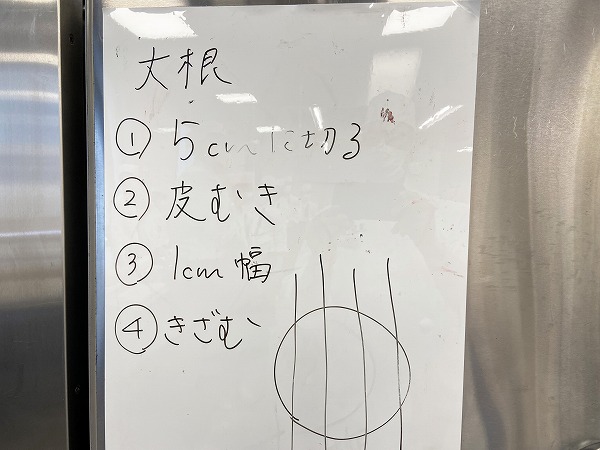 大根
① 5cmに切る
② 皮むき
③ 1cm幅
④ きざむ